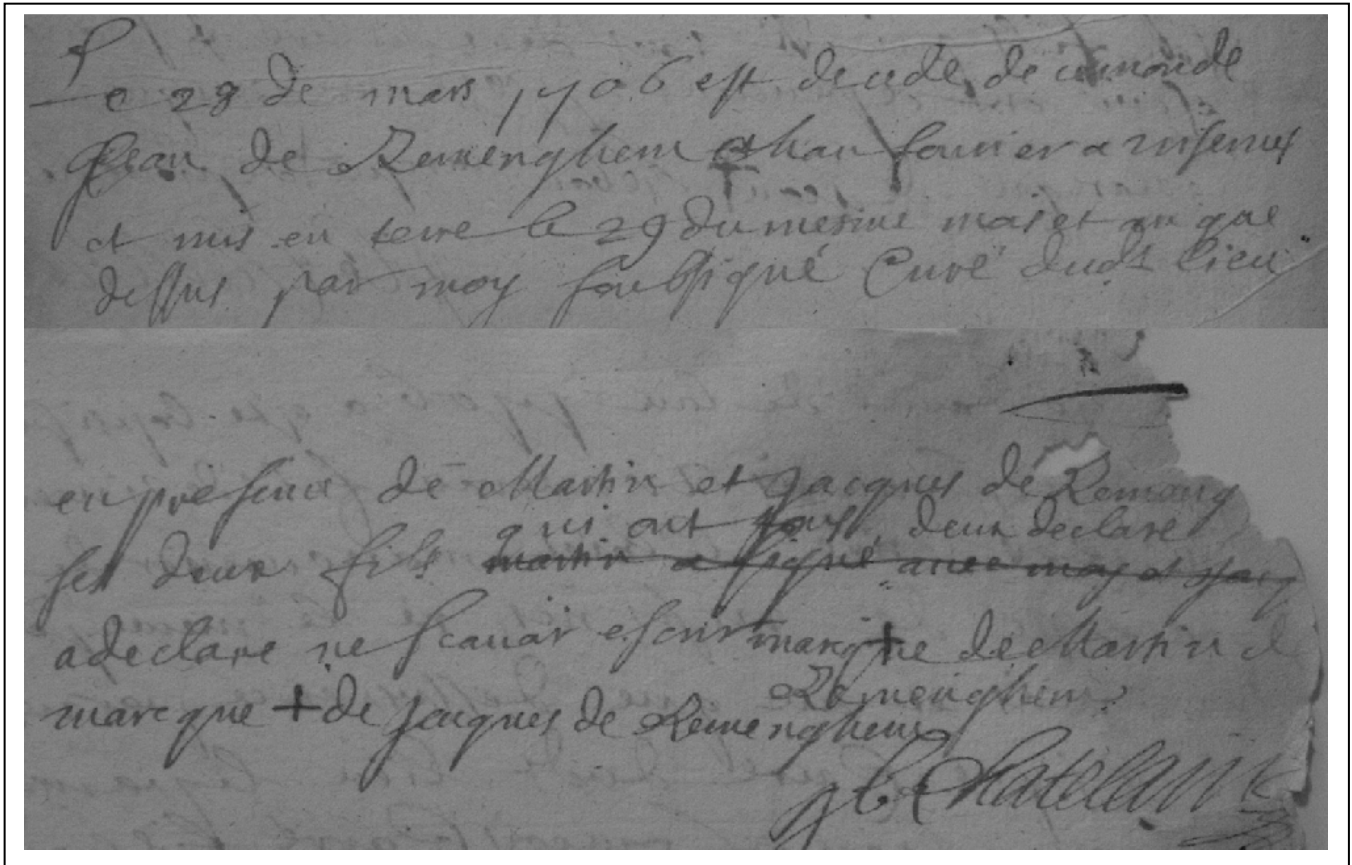 Le 28 de mars 1706 est decede de ce monde
Jean de Remenghem a esté inhumé
et mis en terre le 29 du mesme mois et an que
dessus par moy soubsigné Curé dudt lieu
en presence de Martin et Jacques de Remeng
qui ont tous deux declare
ses deux fils martin a signé avec moy et Jacq
a declare ne scavoir escrir marque de Martin d
Remenghem
marcque + de Jacques de Remenghem
Chatelain